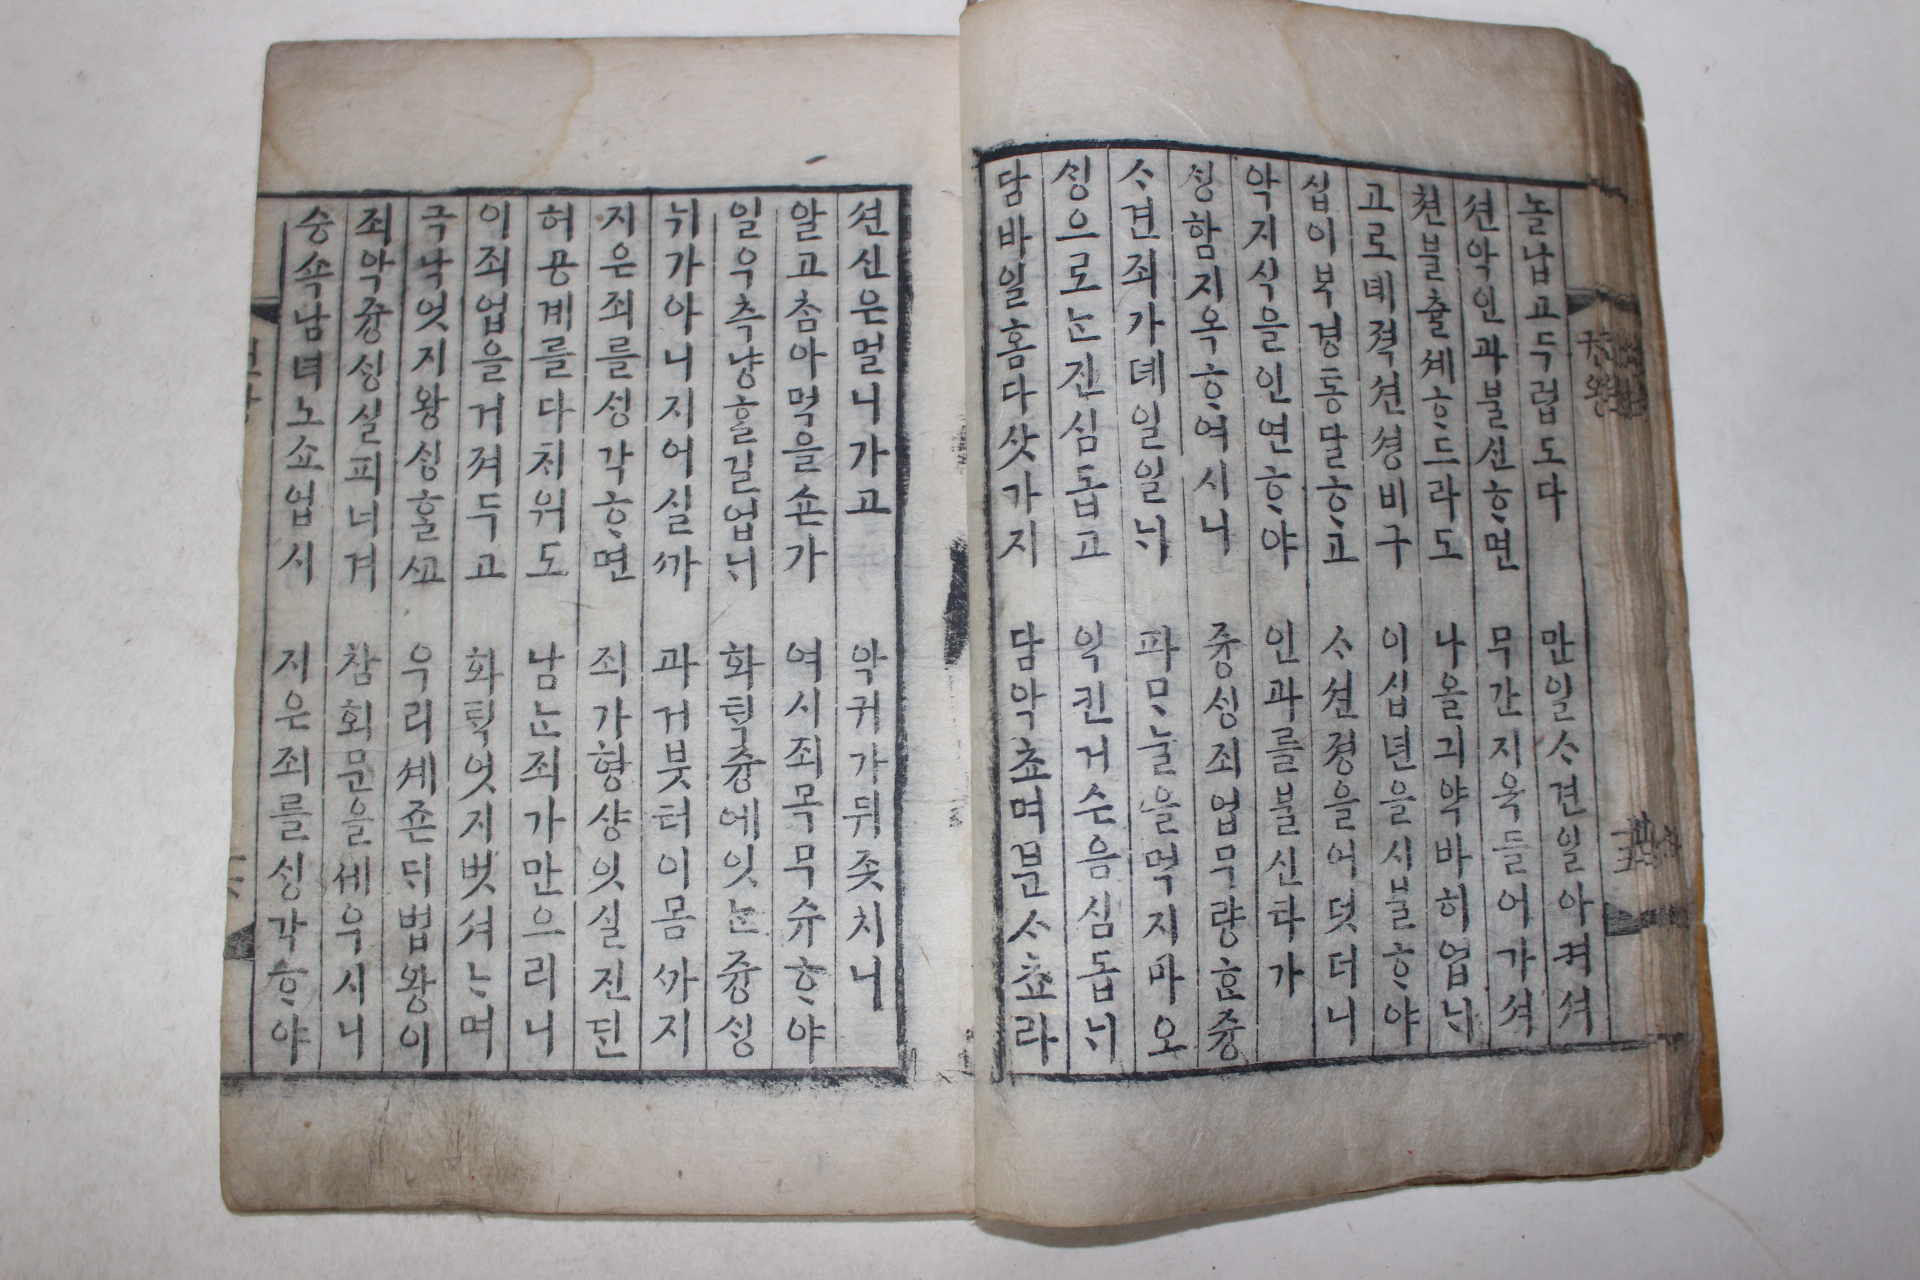 놀납고두렵도다 만일ᄉ견일아켜셔
션악인과불신ᄒ면 무간지옥들어가셔
쳔불츌셰ᄒ드라도 나올긔약바히업ᄂᆡ
고로뎨젹션셩비구 이십년을시불ᄒ야
십이부경통달ᄒ고 ᄉ션졍을어덧더니
악지식을인연ᄒ야 인과를불신타가
ᄉᆡᆼ함지옥ᄒ여시니 즁ᄉᆡᆼ죄업무량ᄒᆞᆫ즁
ᄉ견죄가뎨일일ᄂᆡ 파ᄆᆞᄂᆞᆯ을먹지마오
ᄉᆡᆼ으로ᄂᆞᆫ진심돕고 익킨거슨음심돕ᄂᆡ
담바일홈다삿가지 담악쵸며분ᄉ쵸라
션신은멀니가고 악귀가뒤좃치니
알고참아먹을손가 여시죄목무슈ᄒ야
일우측냥ᄒᆞᆯ길업ᄂᆡ 화ᄐᆡᆨ즁에잇ᄂᆞᆫ즁ᄉᆡᆼ
뉘가아니지어실ᄭᅡ 과거븟터이몸ᄭᅡ지
지은죄를ᄉᆡᆼ각ᄒ면 죄가형샹잇실진ᄃᆡᆫ
허공계를다치워도 남ᄂᆞᆫ죄가만으리니
이죄업을거져두고 화ᄐᆡᆨ엇지벗셔ᄂᆞ며
극낙엇지왕ᄉᆡᆼᄒᆞᆯ고 우리셰존ᄃᆡ법왕이
죄악즁ᄉᆡᆼ실피녀겨 참회문을세우시니
승쇽남녀노쇼업시 지은죄를ᄉᆡᆼ각ᄒ야